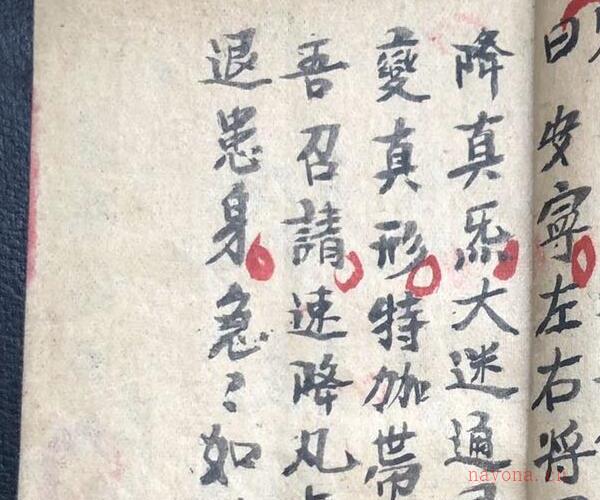 曰安寧左右将
降真炁大迷通
變真形特加帶
吾召請速降凡
退患身急〻如
navona.cn